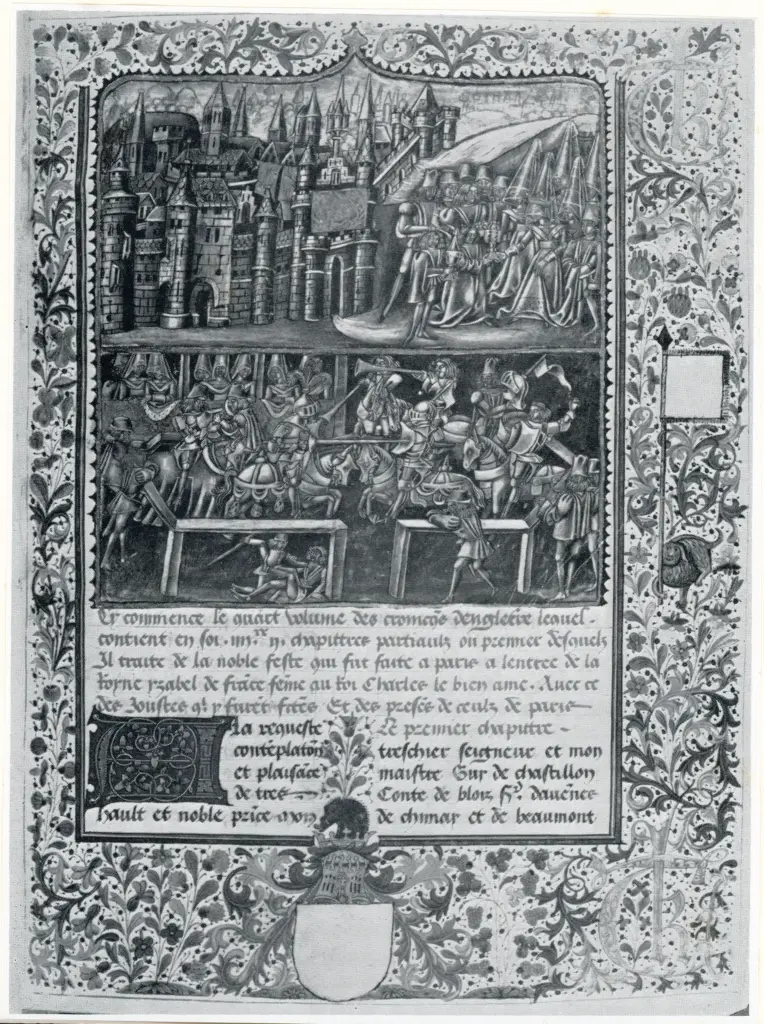 Cy commence le quart volume des cronicqs dengletre lequel
contient en soi .iiii.xx ii. chapittres partiaulx ou premier desquelz
Il traite de la noble feste qui fut faite a paris a lentree de la
Royne yzabel de frāce fēme au Roi Charles le bien ame. Avec ce
des Joustes q̄ y furēt fctēs Et des presēs de ceulz de paris
A la requeste
contēplatōn
et plaisāce
de tres
hault et noble prīce mon
Le premier chapittre
treschier seigneur et mon
maistre Guy de chastillon
Conte de blois sr. davēnes
de chimay et de beaumont